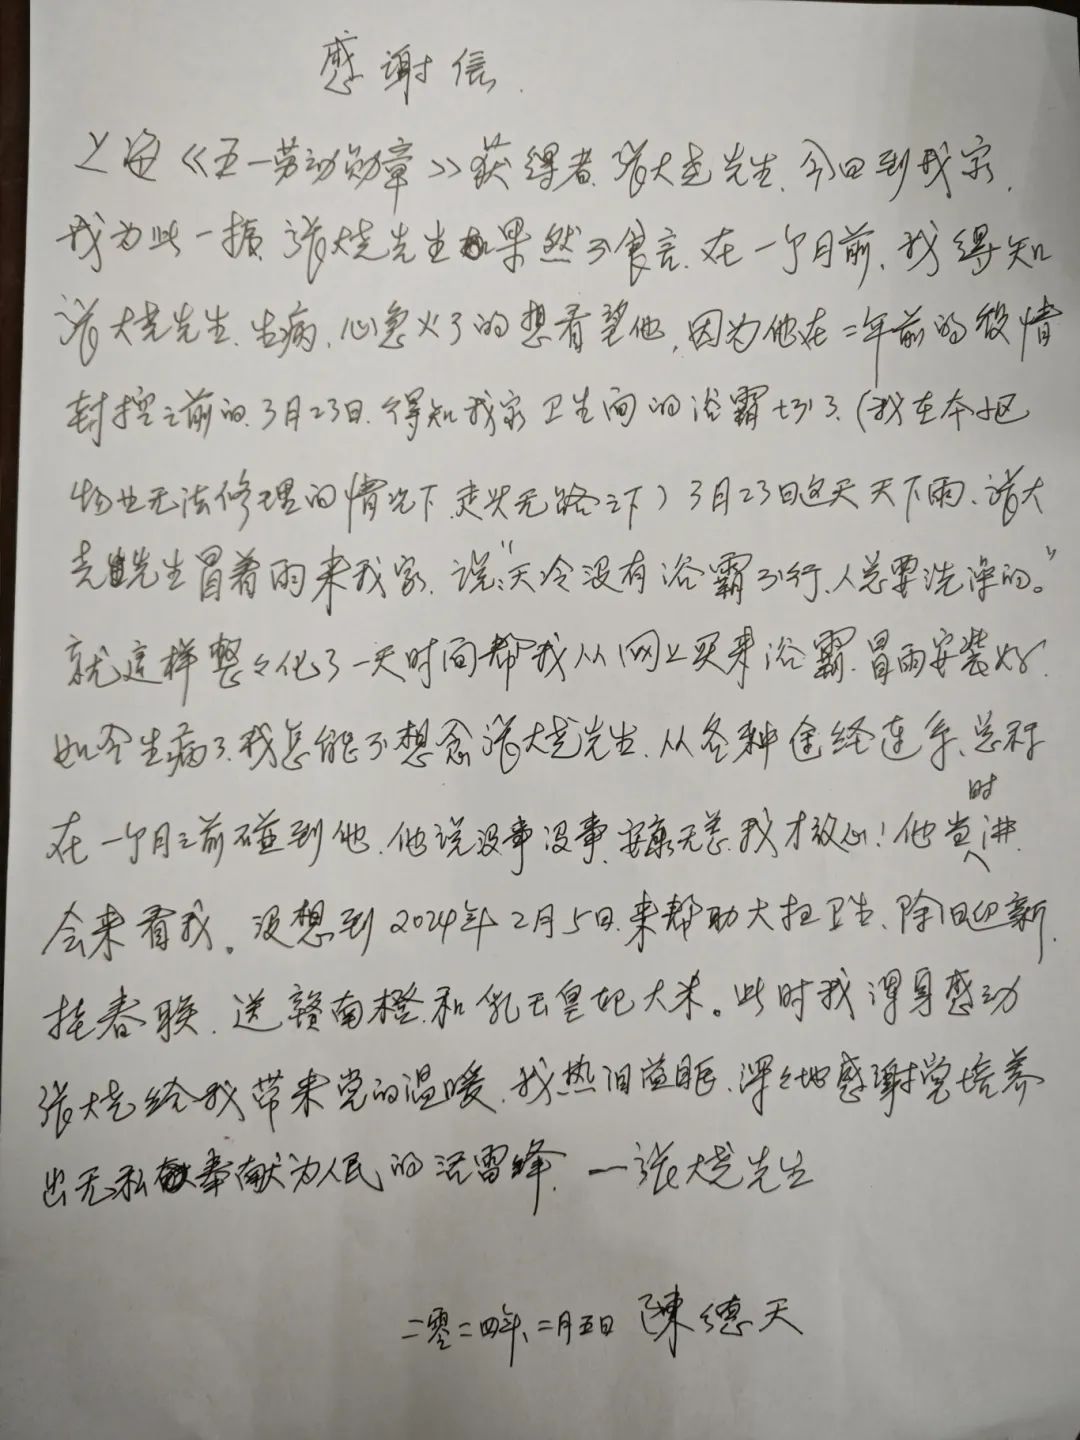 感谢信
上海《五一劳动勋章》获得者、张大尧先生、今日到我家、
我为此一振、张大尧先生果然不食言、在一个月前、我得知
张大尧先生、生病、心急火了的想看望他、因为他在二年前的疫情
封控之前的、3月23日、得知我家卫生间的浴霸坏了、(我在本小区
物业无法修理的情况下、走头无路之下)3月23日这天天下雨、张大
尧先生冒着雨来我家、说:"天冷没有浴霸不行、人总要洗澡的。"
就这样整々化了一天时间帮我从网上买来浴霸、冒雨安装好、
如今生病了、我怎能不想念张大尧先生、从各种途经连系、总称
在一个月之前碰到他、他说没事没事、安康无恙、我才放心!他当时讲、
会来看我。没想到2024年2月5日、来帮助大扫卫生、除旧迎新、
挂春联、送赣南橙、和乳玉皇妃大米。此时我浑身感动
张大尧给我带来党的温暖、我热泪溢眶、深々地感谢党培养
出无私奉献为人民的活雷峰、一张大尧先生
二零二四年、二月五日 陳德天